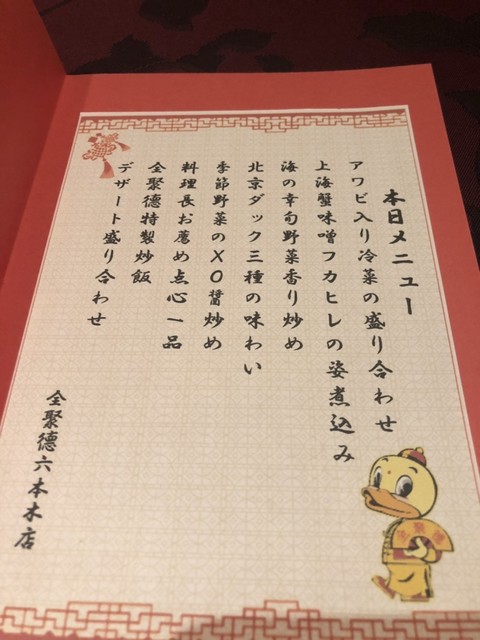 本日メニュー
アワビ入り冷菜の盛り合わせ
上海蟹味噌フカヒレの姿煮込み
海の幸旬野菜香り炒め
北京ダック三種の味わい
季節野菜のXO醤炒め
料理長お薦め点心一品
全聚徳特製炒飯
デザート盛り合わせ
全聚德六本木店